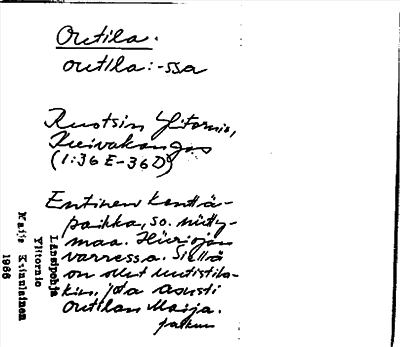 Outila.
outila: -ssa
Ruotsin Ylitornio,
Kuivakangas
(1:36 E-36 D)
Entinen kenttä-
paikka, so. niitty-
maa. Hieriojan
varressa. Siellä
on ollut uutistila-
kin, jota asusti
Outilan Maija.
Länsipohja
Ylitornio
Maija
1986